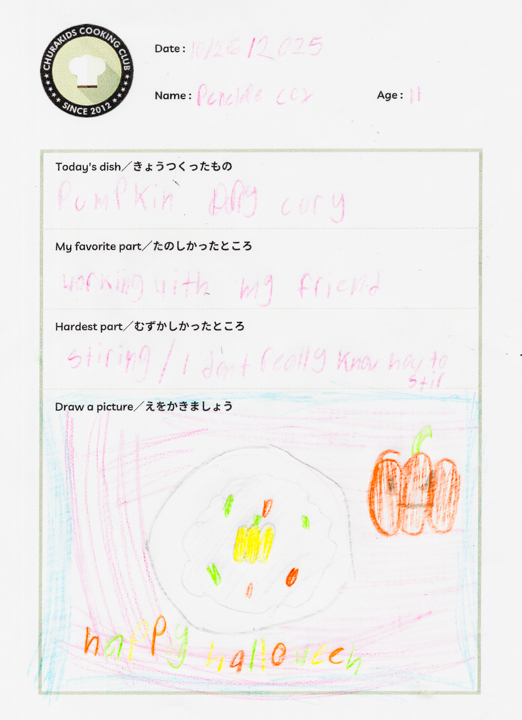 CHURAKIDS COOKING CLUB
SINCE 2012
Date : 10/26/2025
Name : cox
Age : 11
Today's dish／きょうつくったもの
PumPkin DRy cury
My favorite part／たのしかったところ
working with my friend
Hardest part／むずかしかったところ
stiring / I don't really know how to
stir
Draw a picture／えをかきましょう
happy halloween